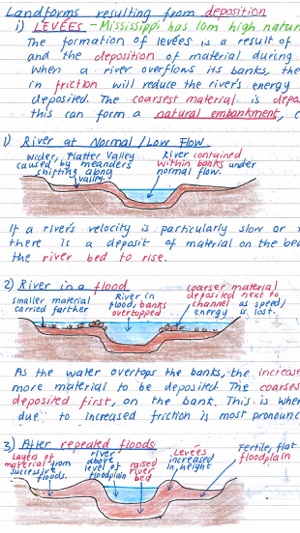 Landforms resulting from deposition
i) LEVÉES - Mississippi has 10m high natur
The formation of levées is a result of
and the deposition of material during
When a river overflows its banks, the
in friction will reduce the river's energy
deposited. The coarsest material is depo
this can form a natural embankment, c
1) River at Normal/Low Flow.
wider, flatter valley
caused by meanders
shifting along
valley.
River contained
within banks under
normal flow.
If a river's velocity is particularly slow or
there is a deposit of material on the bed
the river bed to rise.
2) River in a flood
smaller material
carried further
River in
flood, banks
overtopped
coarser material
deposited next to
channel as speed/
energy is lost.
As the water overtops the banks, the increase
more material to be deposited. The coarses
deposited first, on the bank. This is wher
due to increased friction is most pronounc
3) After repeated floods
Layers of
material from
successive
floods.
river
above
level of
floodplain
raised
river
bed
Levées
increased
in height
Fertile, flat
floodplain